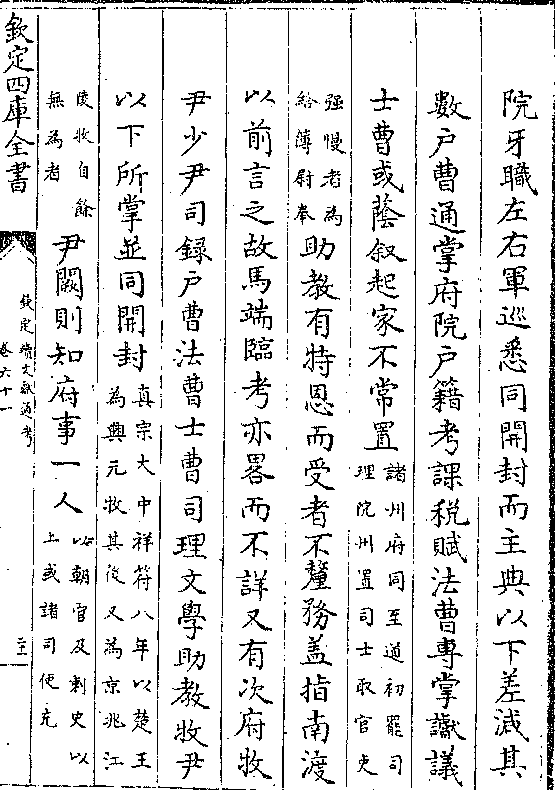 院牙職左右軍巡悉同開封而主典以下差減其
數戶曹通掌府院戶籍考課稅賦法曹專掌讞議
士曹或蔭叙起家不常置諸州府同至道初罷司
理院州置司士取官吏
强慢者為
給簿尉奉助教有特恩而受者不釐務盖指南渡
以前言之故馬端臨考亦畧而不詳又有次府牧
尹少尹司録戶曹法曹士曹司理文學助教牧尹
以下所掌並同開封真宗大中祥符八年以楚王
為興元牧其後又為京兆江
陵牧自餘
無為者尹闕則知府事一人以朝官及刺史以
上或諸司使充
欽定四庫全書
欽定續文獻通考
卷六十一